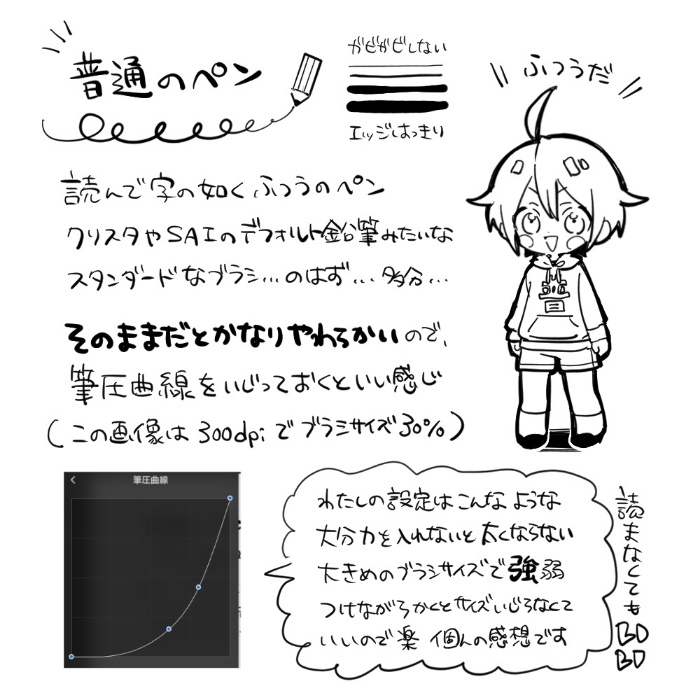 普通のペン
ガビガビしない
エッジはっきり
ふつうだ
読んで字の如くふつうのペン
クリスタやSAIのデフォルト鉛筆みたいな
スタンダードなブラシ…のはず…多分…
そのままだとかなりやわらかいので、
筆圧曲線をいじっておくといい感じ
(この画像は300dpiでブラシサイズ30%)
筆圧曲線
わたしの設定はこんなような
大分力を入れないと太くならない
大きめのブラシサイズで強弱
つけながらかくとサイズいじらなくて
いいので楽 個人の感想です
読まなくても